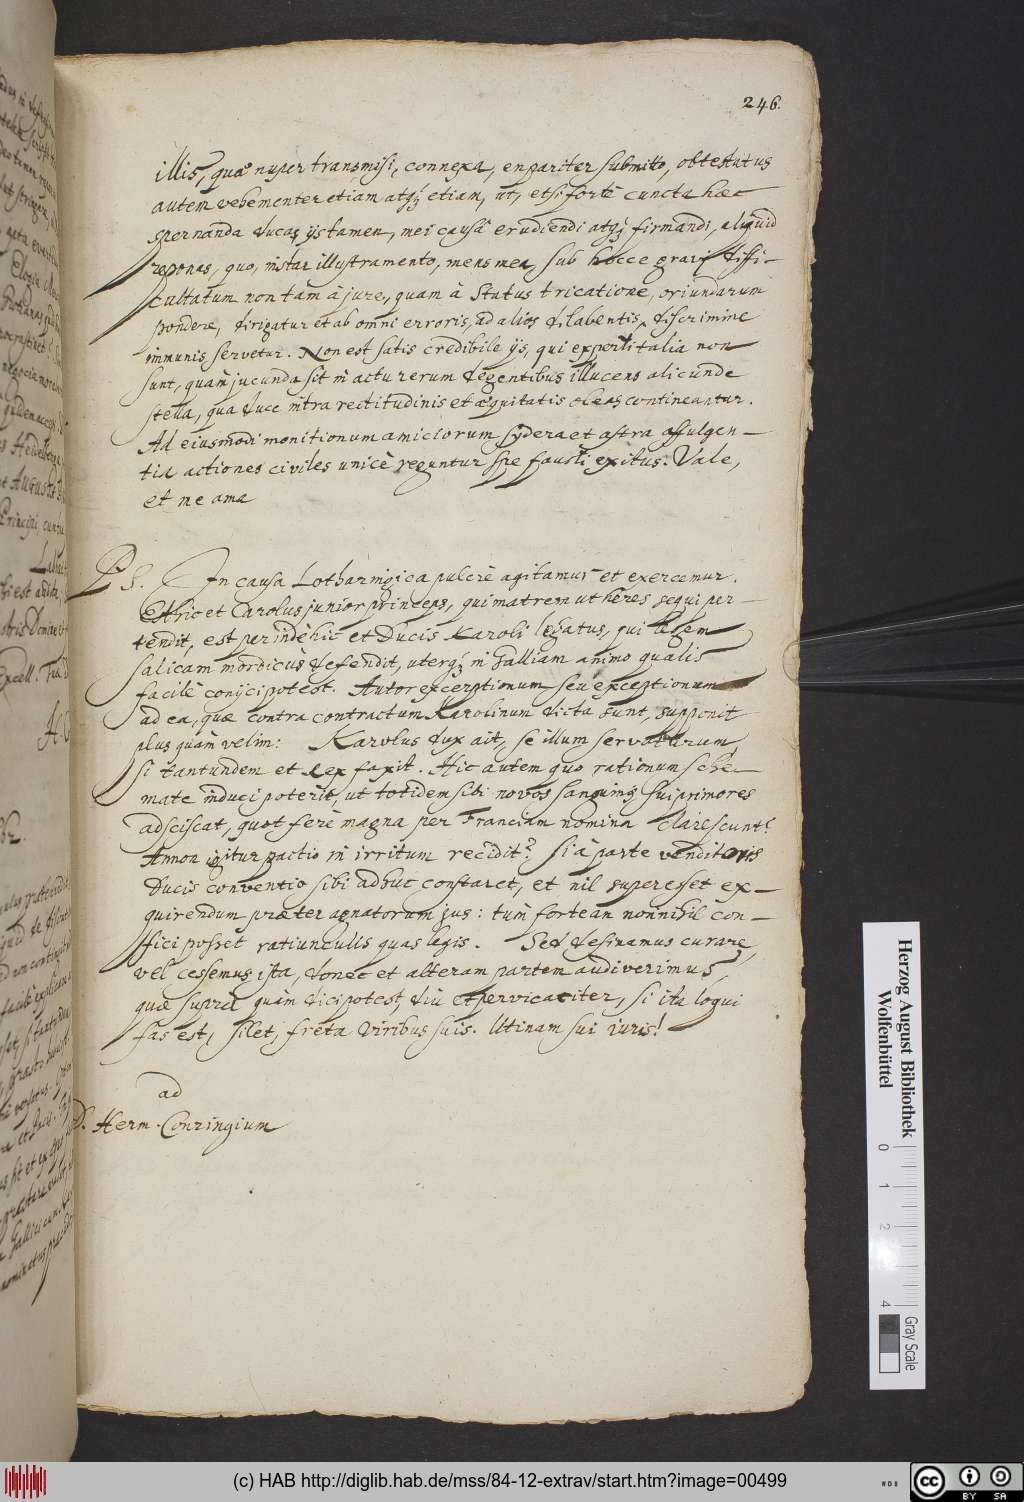 246.
illis, quæ nuper transmisi, connexa, en pariter submitto, obtestatus
autem vehementer etiam atq; etiam, ut, etsi fortè cuncta hæc
spernanda ducas, ijs tamen, mei causâ erudiendi atq; firmandi, aliquid
reponas, quo, instar illustramento, mens mea, sub hocce gravi diffi-
cultatum non tam à jure, quam à Status tricatione, oriundarum
pondere, dirigatur et ab omni erroris, ad alios dilabentis, discrimine
immunis servetur. Non est satis credibile ijs, qui experti talia non
sunt, quàm jucunda sit in actu rerum degentibus illucens alicunde
stella, qua duce intra rectitudinis et æquitatis oleas contineantur.
Ad eiusmodi monitionum amicorum sydera et astra affulgen-
tia actiones civiles unicè reguntur spe fausti exitus. Vale,
et me ama
P. S. In causa Lotharingica pulcrè agitamus et exercemur.
Est hic et Carolus junior princeps, qui matrem ut heres sequi per-
tendit, est perindè hic et Ducis Karoli legatus, qui legem
salicam mordicùs defendit, uterq; in Galliam animo qualis
facilè conijci potest. Autor excerptionum seu exceptionum
ad ea, quæ contra contractum Karolinum dicta sunt, supponit
plus quàm velim: Karolus dux ait, se illum servaturum,
si tantundem et Rex faxit. Hic autem quo rationum sche-
mate induci poterit, ut totidem sibi novos sanguinis sui primores
adsciscat, quot ferè magna per Franciam nomina clarescunt?
Annon igitur pactio in irritum recidit? Si à parte venditoris
Ducis conventio sibi adhuc constaret, et nil superesset ex-
quirendum præter agnatorum jus: tùm fortean nonnihil con-
fici posset ratiunculis quas legis. Sed desinamus curare,
vel cessemus ista, donec et alteram partem audiverimus,
quæ suprà quàm dici potest, diu et pervicaciter, si ita loqui
fas est, silet, freta viribus suis. Utinam sui iuris!
ad
D. Herm. Conringium
Herzog August Bibliothek
Wolfenbüttel
0 1 2 4
Gray Scale
(c) HAB http://diglib.hab.de/mss/84-12-extrav/start.htm?image=00499
cc BY SA